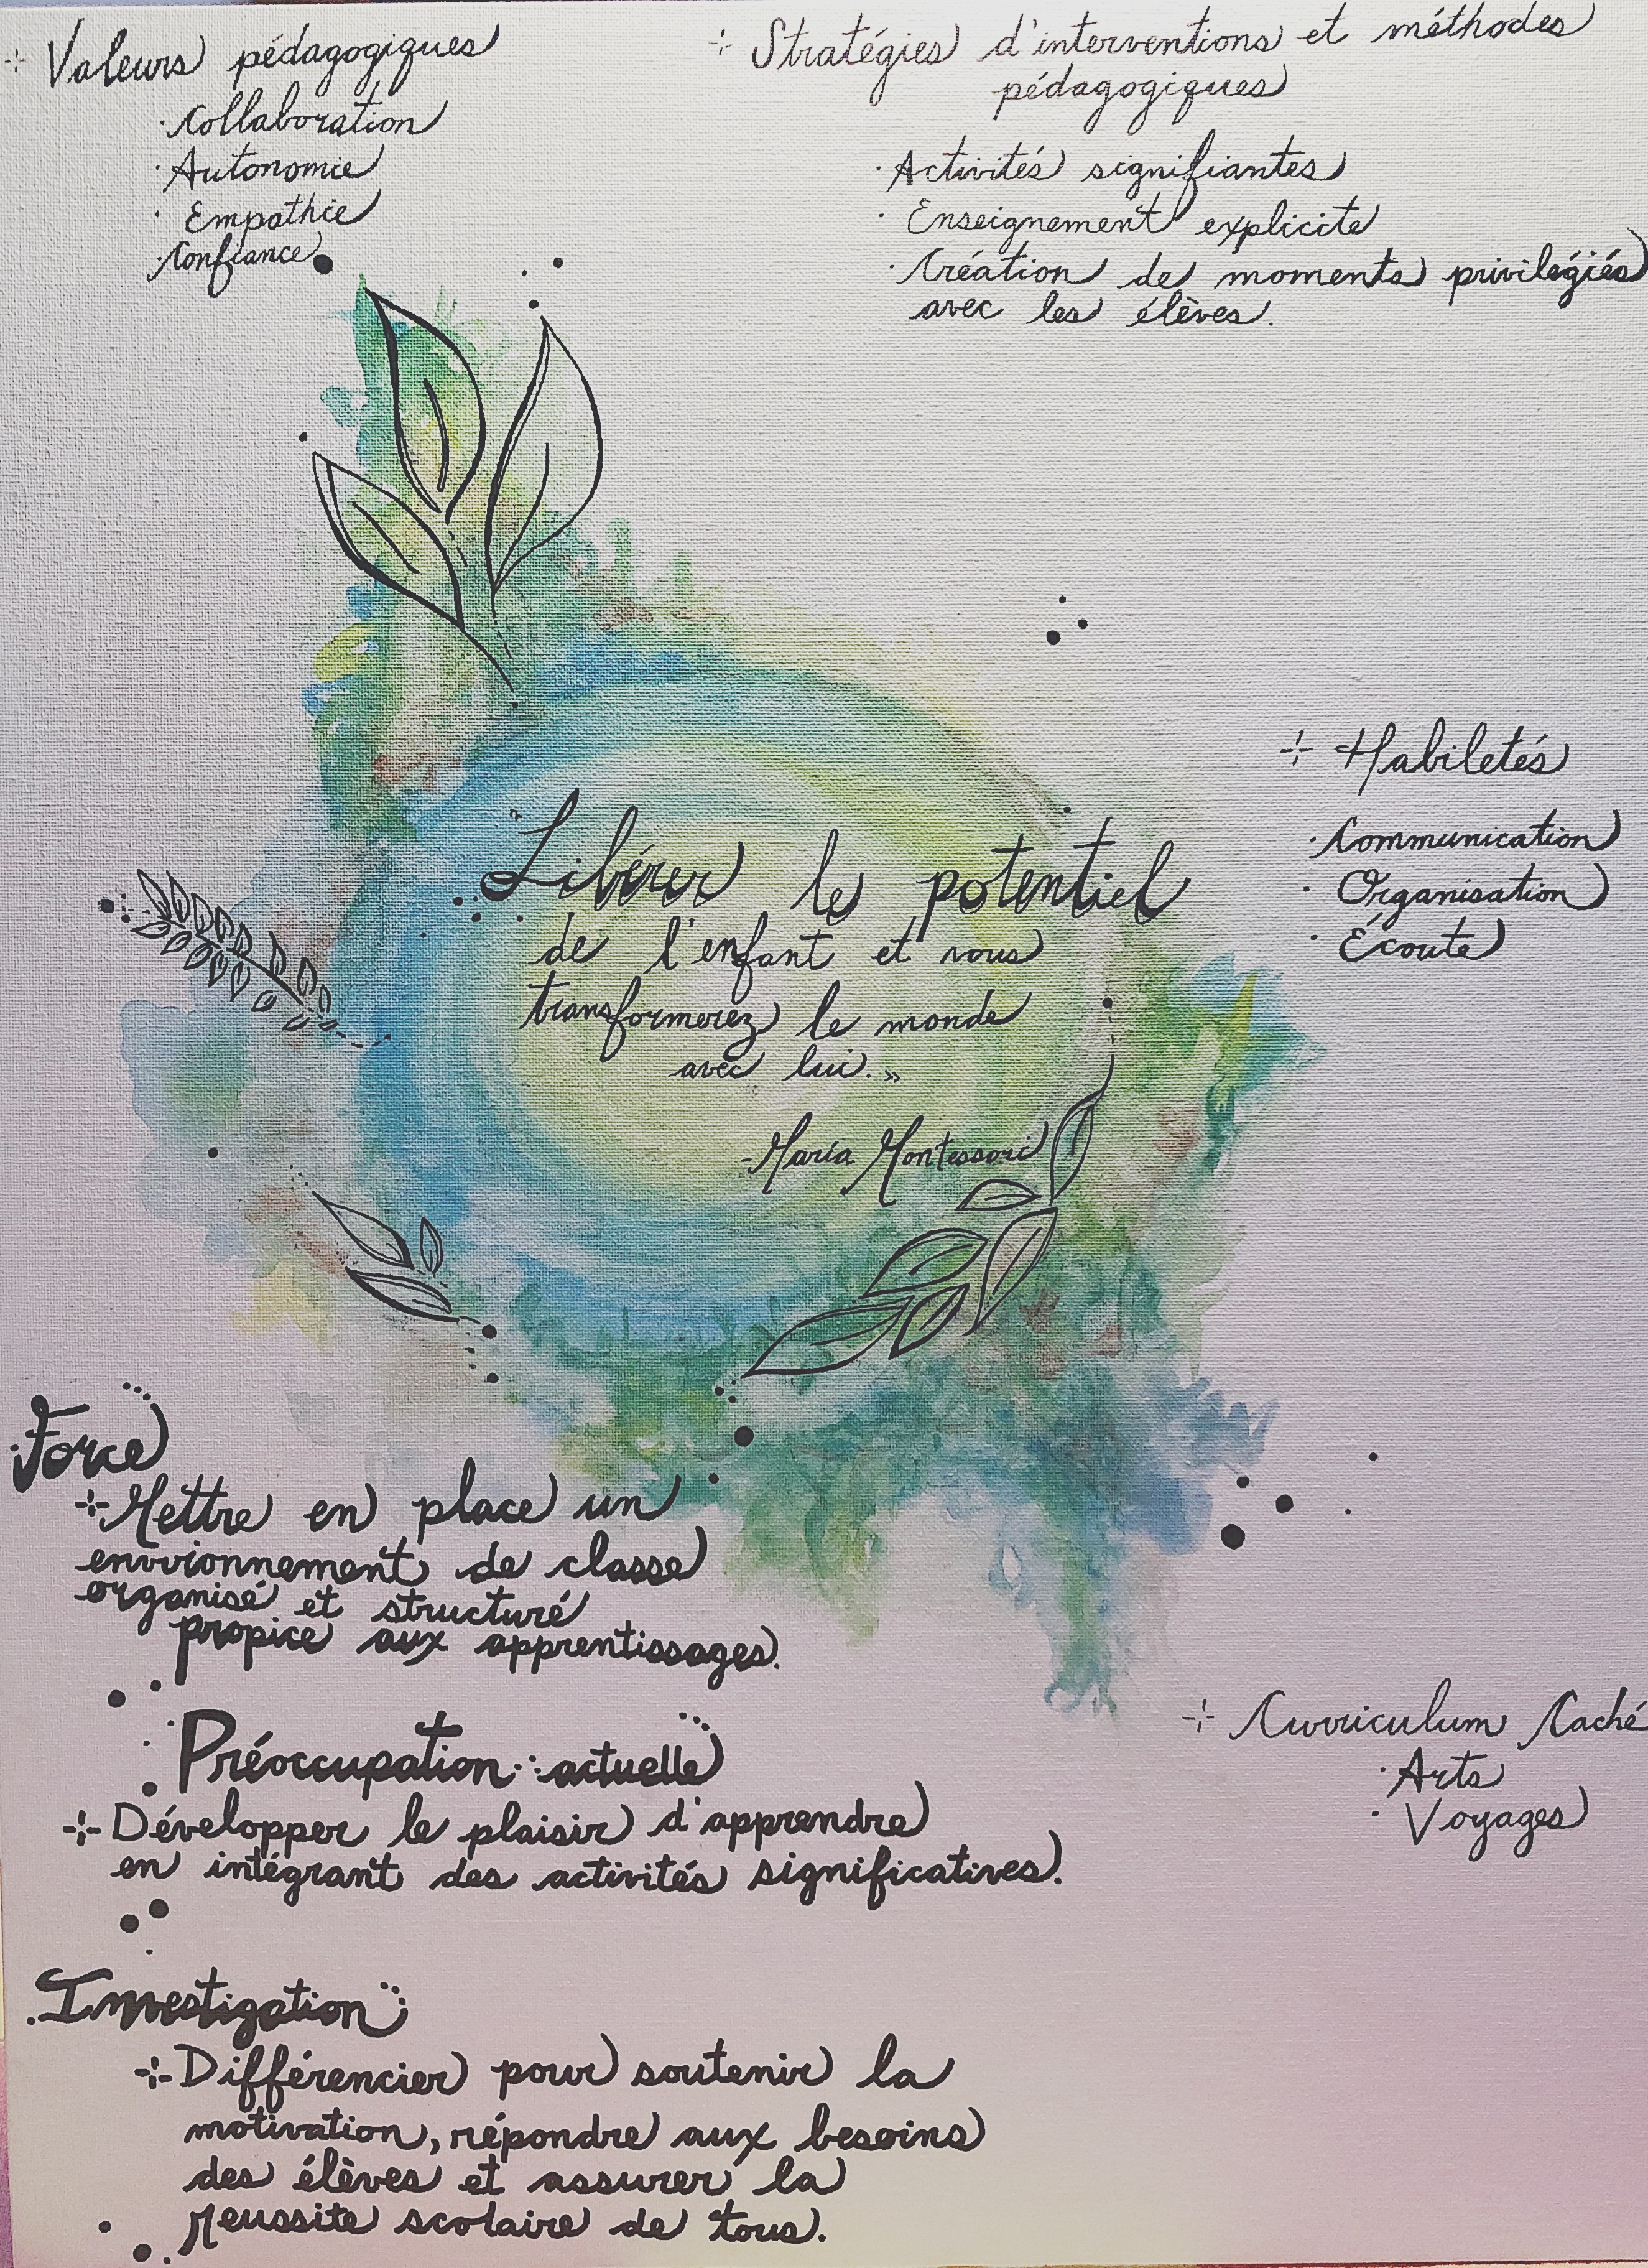 Valeurs pédagogiques
· Collaboration
· Autonomie
· Empathie
Confiance
Stratégies d'interventions et méthodes
pédagogiques
· Activités signifiantes
· Enseignement explicite
· Création de moments privilégiés
avec les élèves.
Habiletés
· Communication
· Organisation
· Écoute
"Libérer le potentiel
de l'enfant et vous
transformerez le monde
avec lui. »
- Maria Montessori
Force
Mettre en place un
environnement de classe
organisé et structuré
propice aux apprentissages.
Préoccupation actuelle
Développer le plaisir d'apprendre
en intégrant des activités significatives.
Curriculum Caché
· Arts
· Voyages
Investigation
Différencier pour soutenir la
motivation, répondre aux besoins
des élèves et assurer la
reussite scolaire de tous.